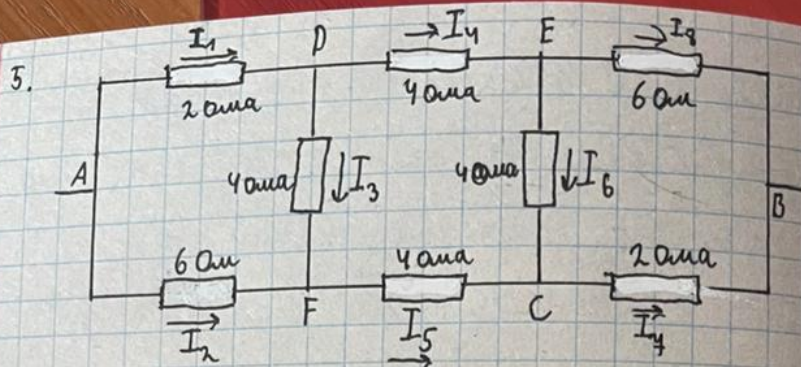 5.
I1 D I4 E I8
2 ома 4 ома 6 Ом
A 4 ома I3 4 ома I6 B
6 Ом 4 ома 2 Ома
I2 F I5 C I7